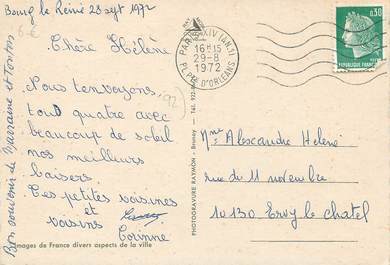 Bourg la Reine 28 sept 1972
6€
Chère Hélène
Nous t'envoyons,
tout quatre avec
beaucoup de soleil
nos meilleurs
baisers.
Tes petites voisines
et
voisins
Corinne
Bon souvenir de Marraine et Tonton
(92)
Images de France divers aspects de la ville
PHOTOGRAVURE RAYMON - Brunoy - Tél. 922
PARIS XIV (AN.1)
16H15
29-8
1972
PL. PTE D'ORLEANS
0,30
REPUBLIQUE FRANCAISE
Mme Alexandre Hélène
rue du 11 novembre
10130 Ervy le chatel